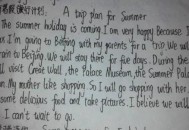 A trip plan for Summer
The Summer holiday is coming. I am very happy Because I
as I'm going to Beijing with my parents for a trip. We will
rain to Beijing. We will stay there for five days. During the
ill visit Great Wall, the Palace Museum, the Summer Pala
n. My mother like shopping. So I will go shopping with her.
some delicious food and take pictures. I believe we will
I can't wait to go.